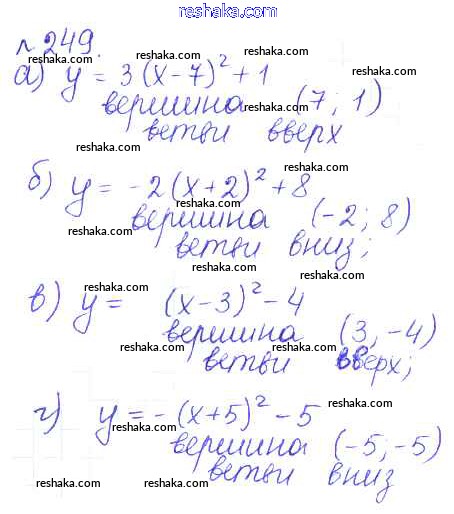 reshaka.com
№ 249.
reshaka.com
а) y = 3(x-7)² + 1
reshaka.com reshaka.com
вершина (7; 1)
reshaka.com
ветви вверх
reshaka.com
reshaka.com
б) y = -2(x+2)² + 8
reshaka.com
вершина (-2; 8)
reshaka.com reshaka.com
ветви вниз;
reshaka.com
reshaka.com
в) y = (x-3)² - 4
reshaka.com
вершина (3, -4)
reshaka.com reshaka.com
ветви вверх;
reshaka.com
reshaka.com
г) y = -(x+5)² - 5
reshaka.com
вершина (-5; -5)
reshaka.com reshaka.com
ветви вниз
reshaka.com
reshaka.com